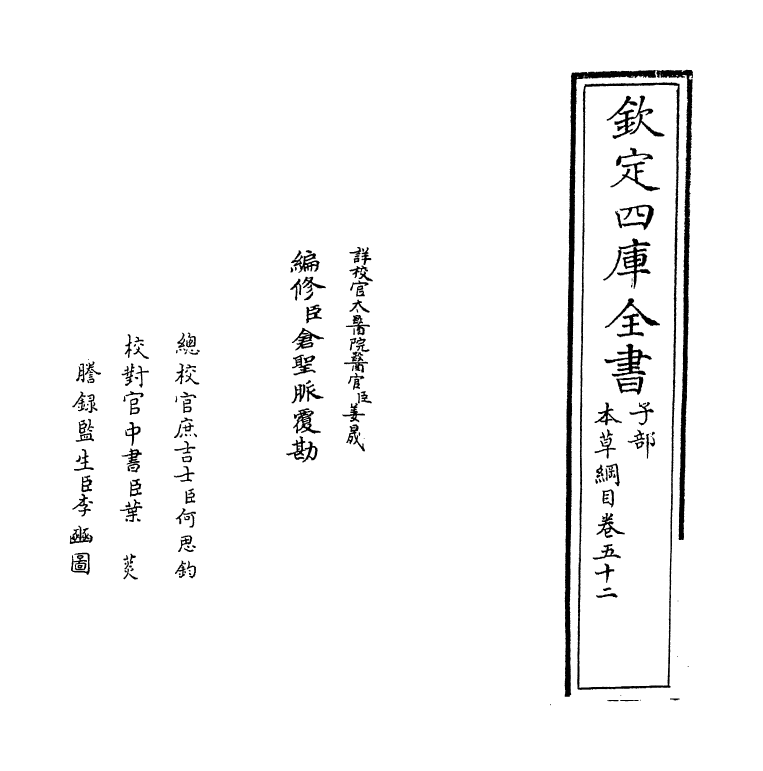 欽定四庫全書
子部
本草綱目卷五十二
詳校官太醫院醫官臣姜晟
編修臣倉聖脈覆勘
總校官庶吉士臣何思鈞
校對官中書臣葉 菼
謄錄監生臣李圖